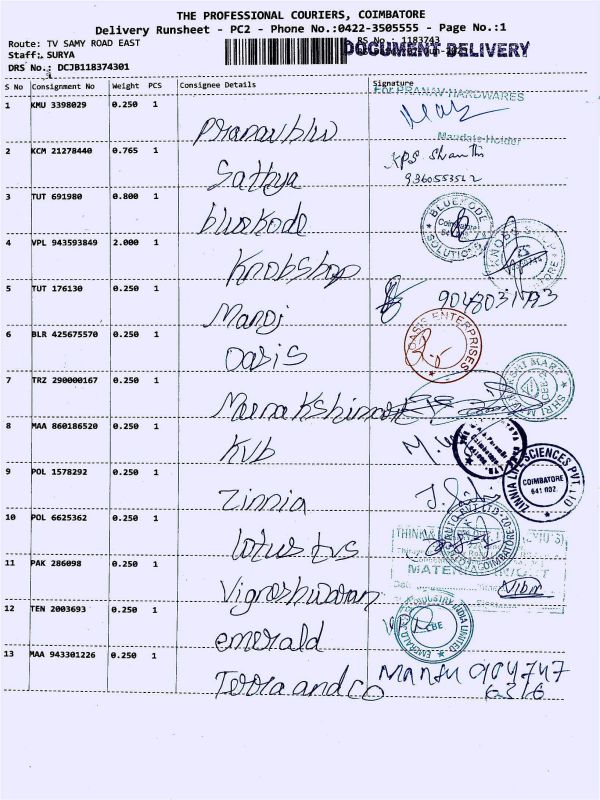 THE PROFESSIONAL COURIERS, COIMBATORE
Delivery Runsheet - PC2 - Phone No.:0422-3505555 - Page No.:1
Route: TV SAMY ROAD EAST
RS No.: 1183743
DOCUMENT DELIVERY
Staff: SURYA
DRS No.: DCJB118374301
S No Consignment No Weight PCS Consignee Details Signature
For PRANAV HARDWARES
1 KMU 3398029 0.250 1 Pranav blu
Mandate Holder
2 KCM 21278440 0.765 1 Sathya KPS Shanthi
9360553522
3 TUT 691980 0.800 1 bluekode BLUEKODE SOLUTIONS Coimbatore
4 VPL 943593849 2.000 1 Knobshop KNOB STORE
5 TUT 176130 0.250 1 Manoj
6 BLR 425675570 0.250 1 Oasis OASIS ENTERPRISES
7 TRZ 290000167 0.250 1 Meenakshi mart SHRI MEENAKSHI MART
8 MAA 860186520 0.250 1 KVB
9 POL 1578292 0.250 1 Zinnia ZINNIA LIFE SCIENCES PVT. LTD COIMBATORE 641 002.
10 POL 6625362 0.250 1 lotus tvs COIMBATORE
11 PAK 286098 0.250 1 Vigneshwaran
12 TEN 2003693 0.250 1 emerald EMERALD INDUSTRY INDIA LIMITED CBE
13 MAA 943301226 0.250 1 Terra and co Manju 904747
6316